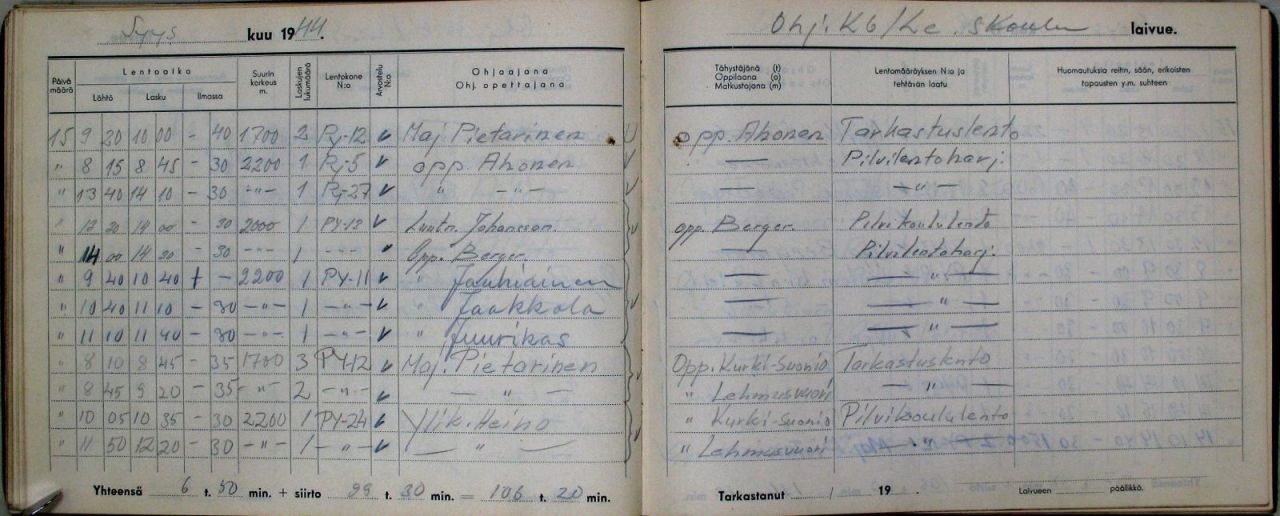 Syys kuu 1944.
Lentoaika
Päivämäärä Lähtö Lasku Ilmassa Suurin korkeus m. Laskujen lukumäärä Lentokone N:o Arvostelu N:o Ohjaajana Ohj. opettajana
15 9 20 10 00 - 40 1700 2 Pj-12 v Maj. Pietarinen
" 8 15 8 45 - 30 2200 1 Pj-5 v opp. Ahonen
" 13 40 14 10 - 30 -"- 1 Pj-27 v " -"-
" 20 14 00 - 30 2000 1 PY-13 v Luutn. Johansson.
" 14 00 14 30 - 30 1 -"- Opp. Berger.
" 9 40 10 40 1 - 2200 1 PY-11 v " Jauhiainen
" 10 40 11 10 - 30 -"- 1 -"- v " Jaakkola
" 11 10 11 40 - 30 -"- 1 -"- v " Juurikas
" 8 10 8 45 - 35 1700 3 PY-12 v Maj. Pietarinen
" 8 45 9 20 - 35 -"- 2 -"- v — " —
" 10 05 10 35 - 30 2200 1 PY-24 v Ylik. Heino
" 11 50 12 20 - 30 -"- 1 -"- v — " —
Yhteensä 6 t. 50 min. + siirto 99 t. 30 min. = 106 t. 20 min.
Ohj. Kb/Lc. Skoulu laivue.
Tähystäjänä (t) Oppilaana (o) Matkustajana (m) Lentomääräyksen N:o ja tehtävän laatu Huomautuksia reitin, sään, erikoisten tapausten y.m. suhteen
opp. Ahonen Tarkastuslento
— Pilvilentoharj.
— — " —
opp. Berger. Pilvikoululento
— Pilvilentoharj.
— — " —
— — " —
— — " —
Opp. Kurki-Suonio Tarkastuslento
" Lehmusvuori — " —
" Kurki-Suonio Pilvikoululento
" Lehmusvuori — " —
Tarkastanut / 19 . Laivueen päällikkö.